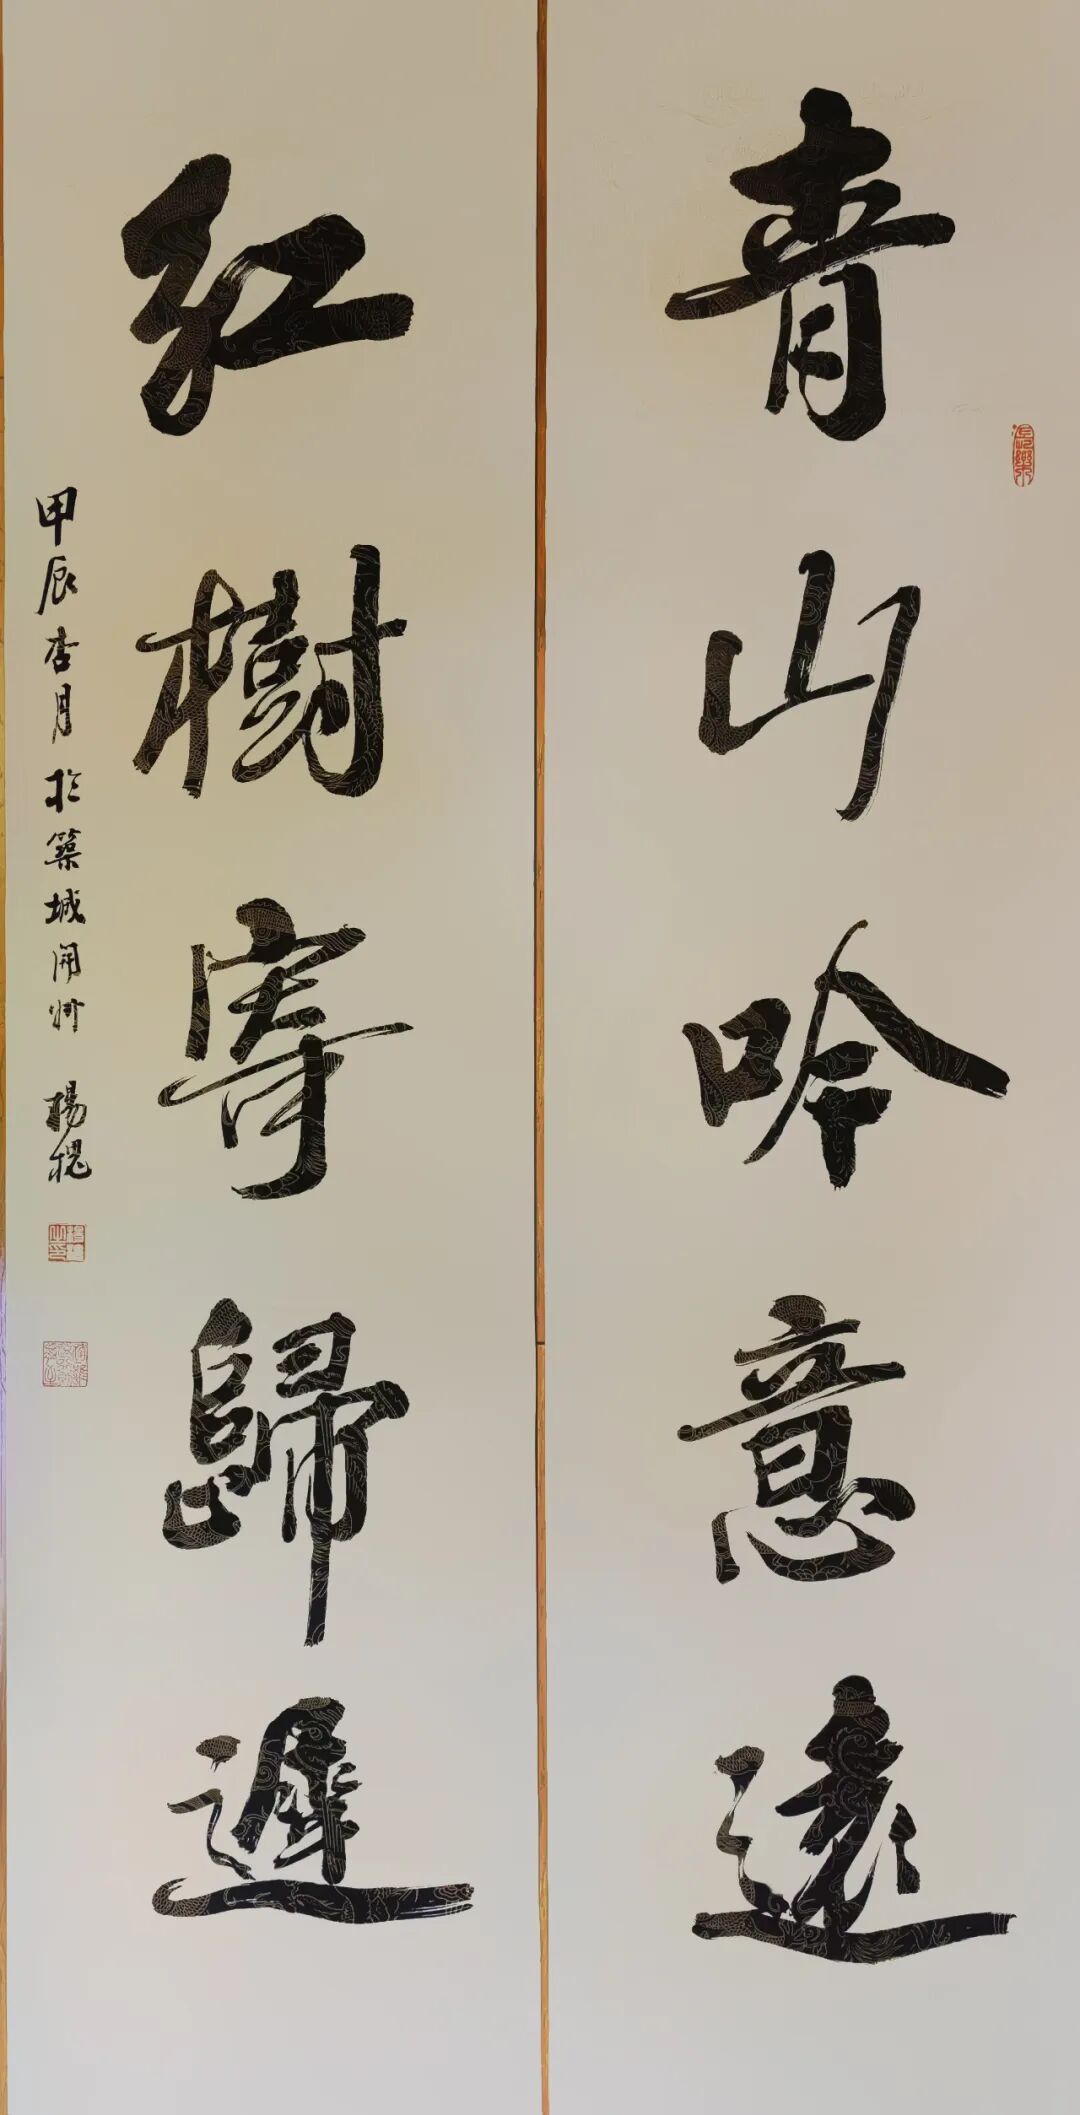 青山吟意遠
紅樹寄歸遲
甲辰杏月於築城開州 楊槐